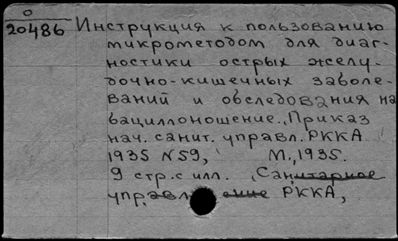 О
20486 Инструкция к пользованию
микрометодом для диаг-
ностики острых желу-
дочно-кишечных заболе-
ваний и обследования на
бациллоношение. Приказ
нач. санит. управл. РККА
1935 N59, М., 1935.
9 стр. с илл. (Санитарное
управление РККА,